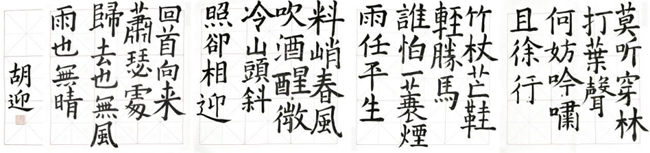 莫听穿林
打葉聲
何妨吟嘯
且徐行
竹杖芒鞋
輕勝馬
誰怕一蓑煙
雨任平生
料峭春風
吹酒醒微
冷山頭斜
照卻相迎
回首向来
蕭瑟處
歸去也無風
雨也無晴
胡迎